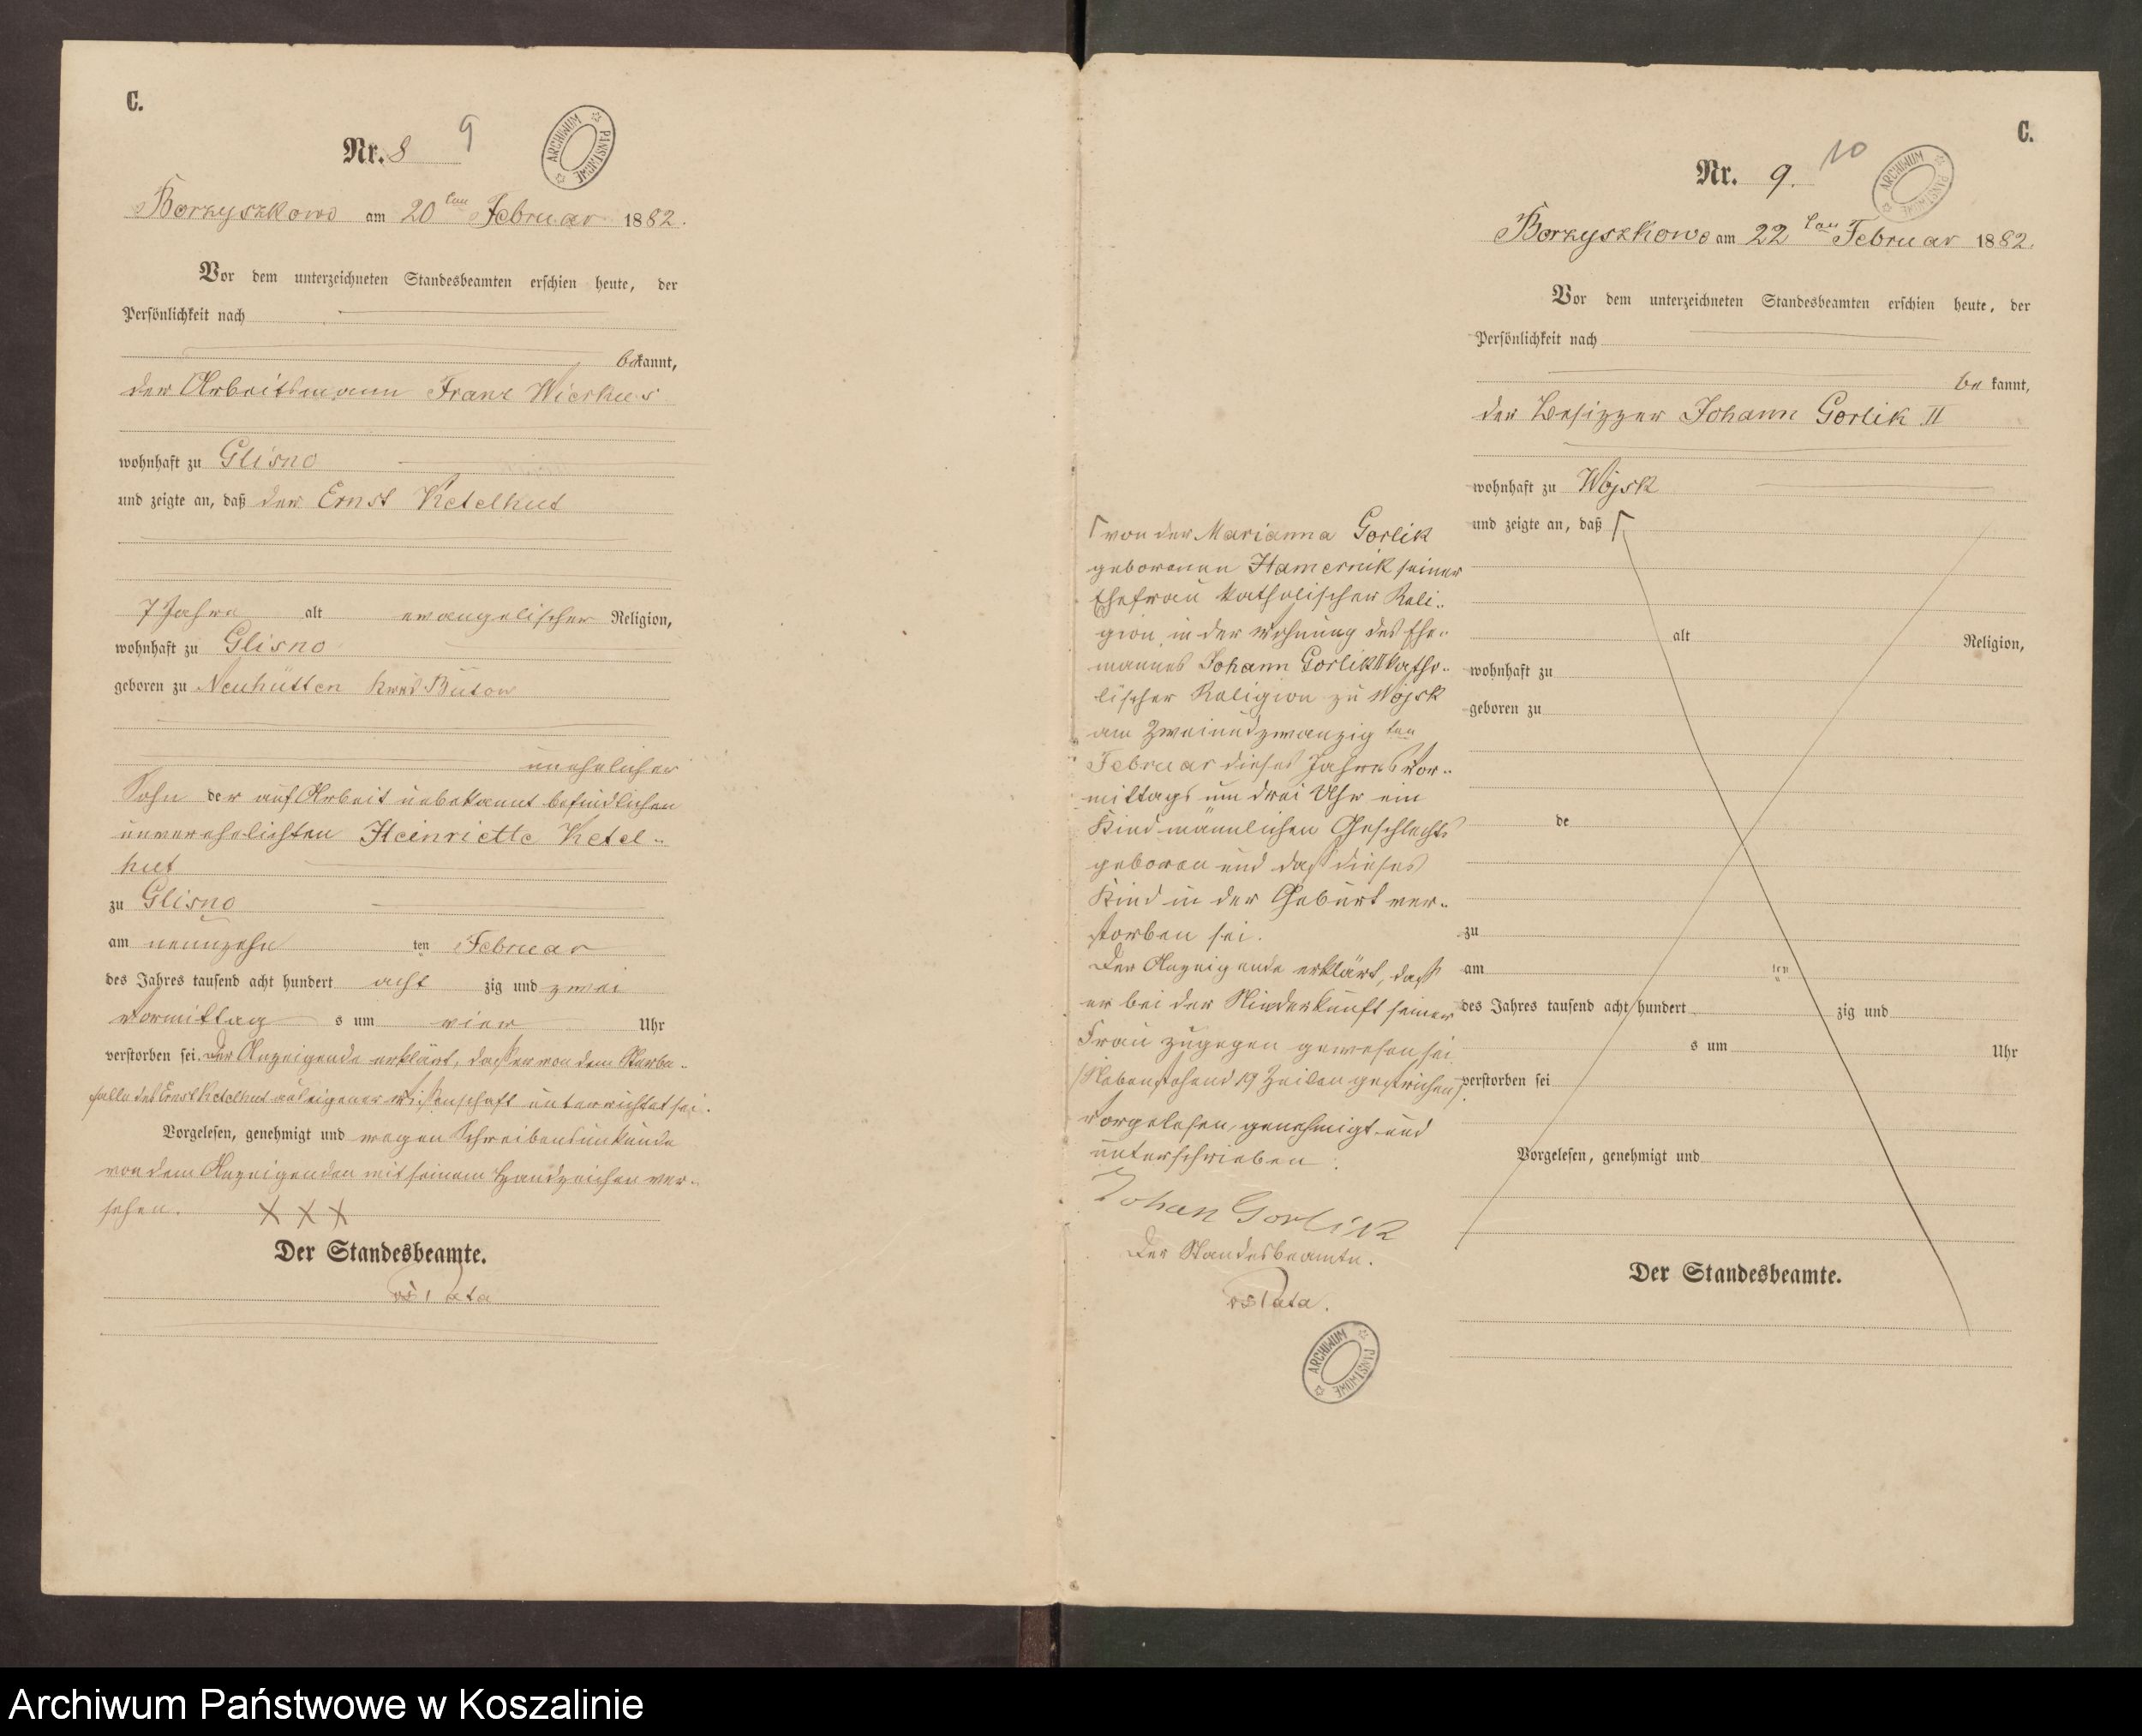 C.
Nr. 8 9
ARCHIWUM PAŃSTWOWE
Borzyszkowo am 20ten Februar 1882.
Vor dem unterzeichneten Standesbeamten erschien heute, der
Persönlichkeit nach
bekannt,
der Arbeitsmann Franz Wierkus
wohnhaft zu Glisno
und zeigte an, daß der Ernst Ketelhut
7 Jahre alt evangelischer Religion,
wohnhaft zu Glisno
geboren zu Neuhütten Kreis Bütow
unehelicher
Sohn der auf Arbeit unbekannt befindlichen
unverehelichten Heinriette Ketel-
hut
zu Glisno
am neunzehn ten Februar
des Jahres tausend acht hundert acht zig und zwei
Vormittag s um vier Uhr
verstorben sei. Der Anzeigende erklärt, daß er von dem Sterbe-
falle des Ernst Ketelhut aus eigener Wissenschaft unterrichtet sei.
Vorgelesen, genehmigt und wegen Schreibensunkunde
von dem Anzeigenden mit seinem Handzeichen ver-
sehen. XXX
Der Standesbeamte.
C.
Nr. 9. 10
ARCHIWUM PAŃSTWOWE
Borzyszkowo am 22ten Februar 1882.
Vor dem unterzeichneten Standesbeamten erschien heute, der
Persönlichkeit nach
be kannt,
der Besitzer Johann Gorlik II
wohnhaft zu Wojsk
und zeigte an, daß ⌈
alt Religion,
wohnhaft zu
geboren zu
de
zu
am ten
des Jahres tausend acht hundert zig und
s um Uhr
verstorben sei
Vorgelesen, genehmigt und
Der Standesbeamte.
⌈von der Marianna Gorlik
geborenen Hamernik seiner
Ehefrau katholischer Reli-
gion, in der Wohnung des Ehe-
mannes Johann Gorlik II katho-
lischer Religion zu Wojsk
am Zweiundzwanzig ten
Februar dieses Jahres Vor-
mittags um drei Uhr ein
Kind männlichen Geschlechts
geboren und daß dieses
Kind in der Geburt ver-
storben sei.
Der Anzeigende erklärt, daß
er bei der Niederkunft seiner
Frau zugegen gewesen sei
/Nebenstehend 19 Zeilen gestrichen/.
Vorgelesen, genehmigt und
unterschrieben.
Johan Gorlik
Der Standesbeamte.
ARCHIWUM PAŃSTWOWE
Archiwum Państwowe w Koszalinie